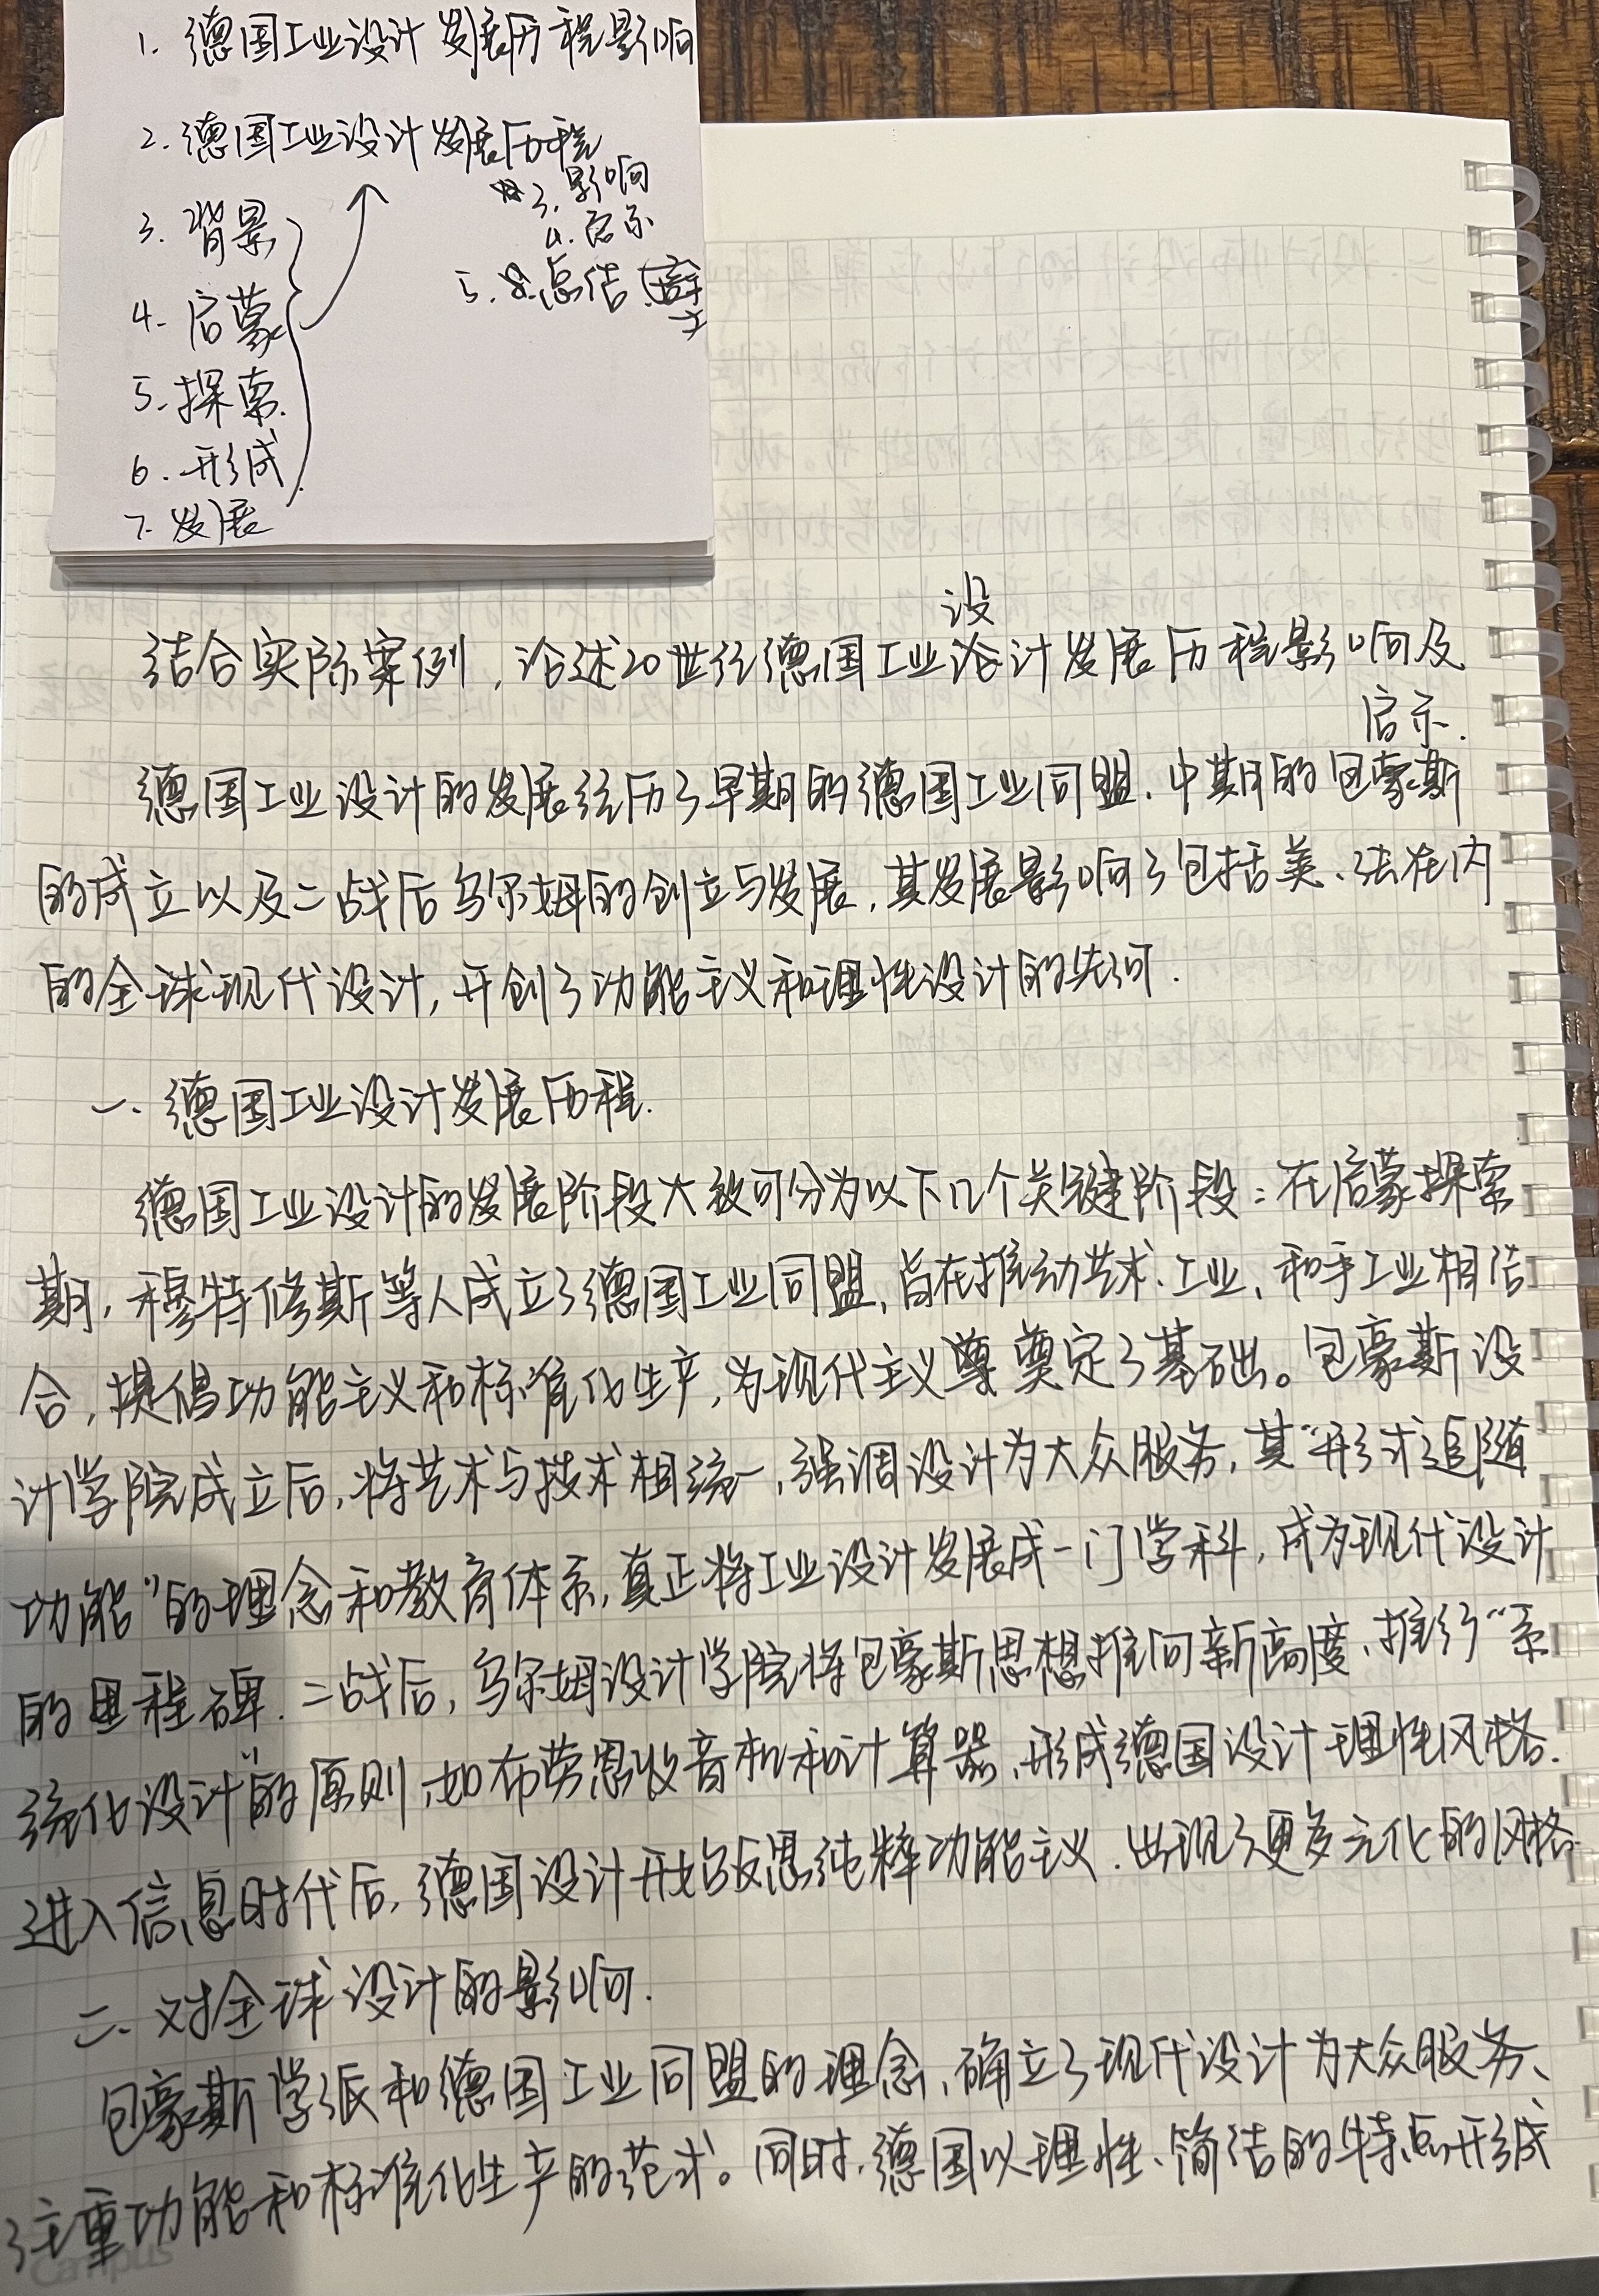 1. 德国工业设计发展历程影响
2. 德国工业设计发展历程
3. 影响
4. 启示
5. 总结
3. 背景
4. 启蒙
5. 探索.
6. 形成
7. 发展
设
结合实际案例，论述20世纪德国工业论计发展历程影响及
启示.
德国工业设计的发展经历了早期的德国工业同盟、中期的包豪斯
的成立以及二战后乌尔姆的创立与发展，其发展影响了包括美、法在内
的全球现代设计，开创了功能主义和理性设计的先河.
一、德国工业设计发展历程.
德国工业设计的发展阶段大致可分为以下几个关键阶段：在启蒙探索
期，穆特修斯等人成立了德国工业同盟，旨在推动艺术、工业、和手工业相结
合，提倡功能主义和标准化生产，为现代主义奠定了基础。包豪斯设
计学院成立后，将艺术与技术相统一，强调设计为大众服务，其“形式追随
功能”的理念和教育体系，真正将工业设计发展成一门学科，成为现代设计
的里程碑. 二战后，乌尔姆设计学院将包豪斯思想推向新高度、推行“系
统化设计”的原则，如布劳恩收音机和计算器、形成德国设计理性风格.
进入信息时代后，德国设计开始反思纯粹功能主义. 出现了更多元化的风格.
二、对全球设计的影响.
包豪斯学派和德国工业同盟的理念、确立了现代设计为大众服务、
注重功能和标准化生产的范式。同时，德国以理性、简洁的特点形成
Campus